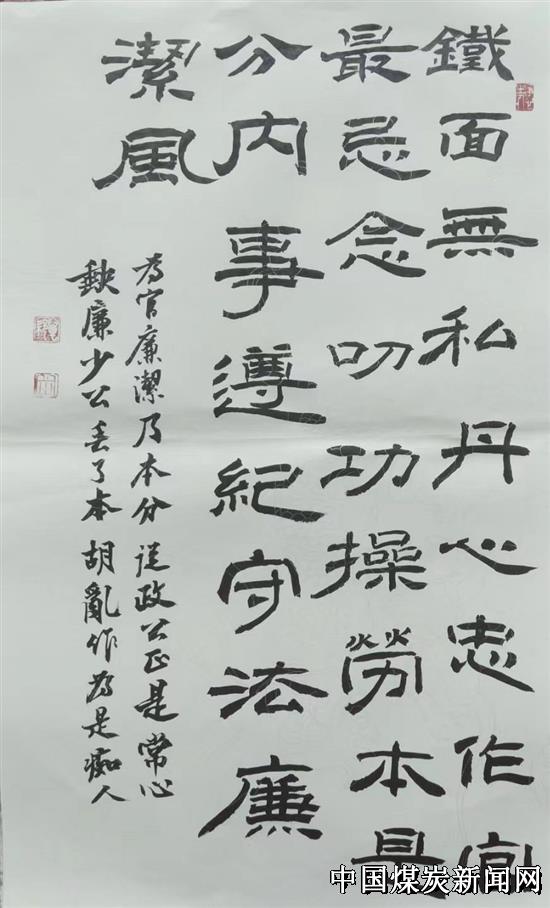 鐵面無私丹心忠作官
最忌念叨功操勞本是
分內事遵紀守法廉
潔風
為官廉潔乃本分 從政公正是常心
缺廉少公丢了本 胡亂作為是痴人
中国煤炭新闻网